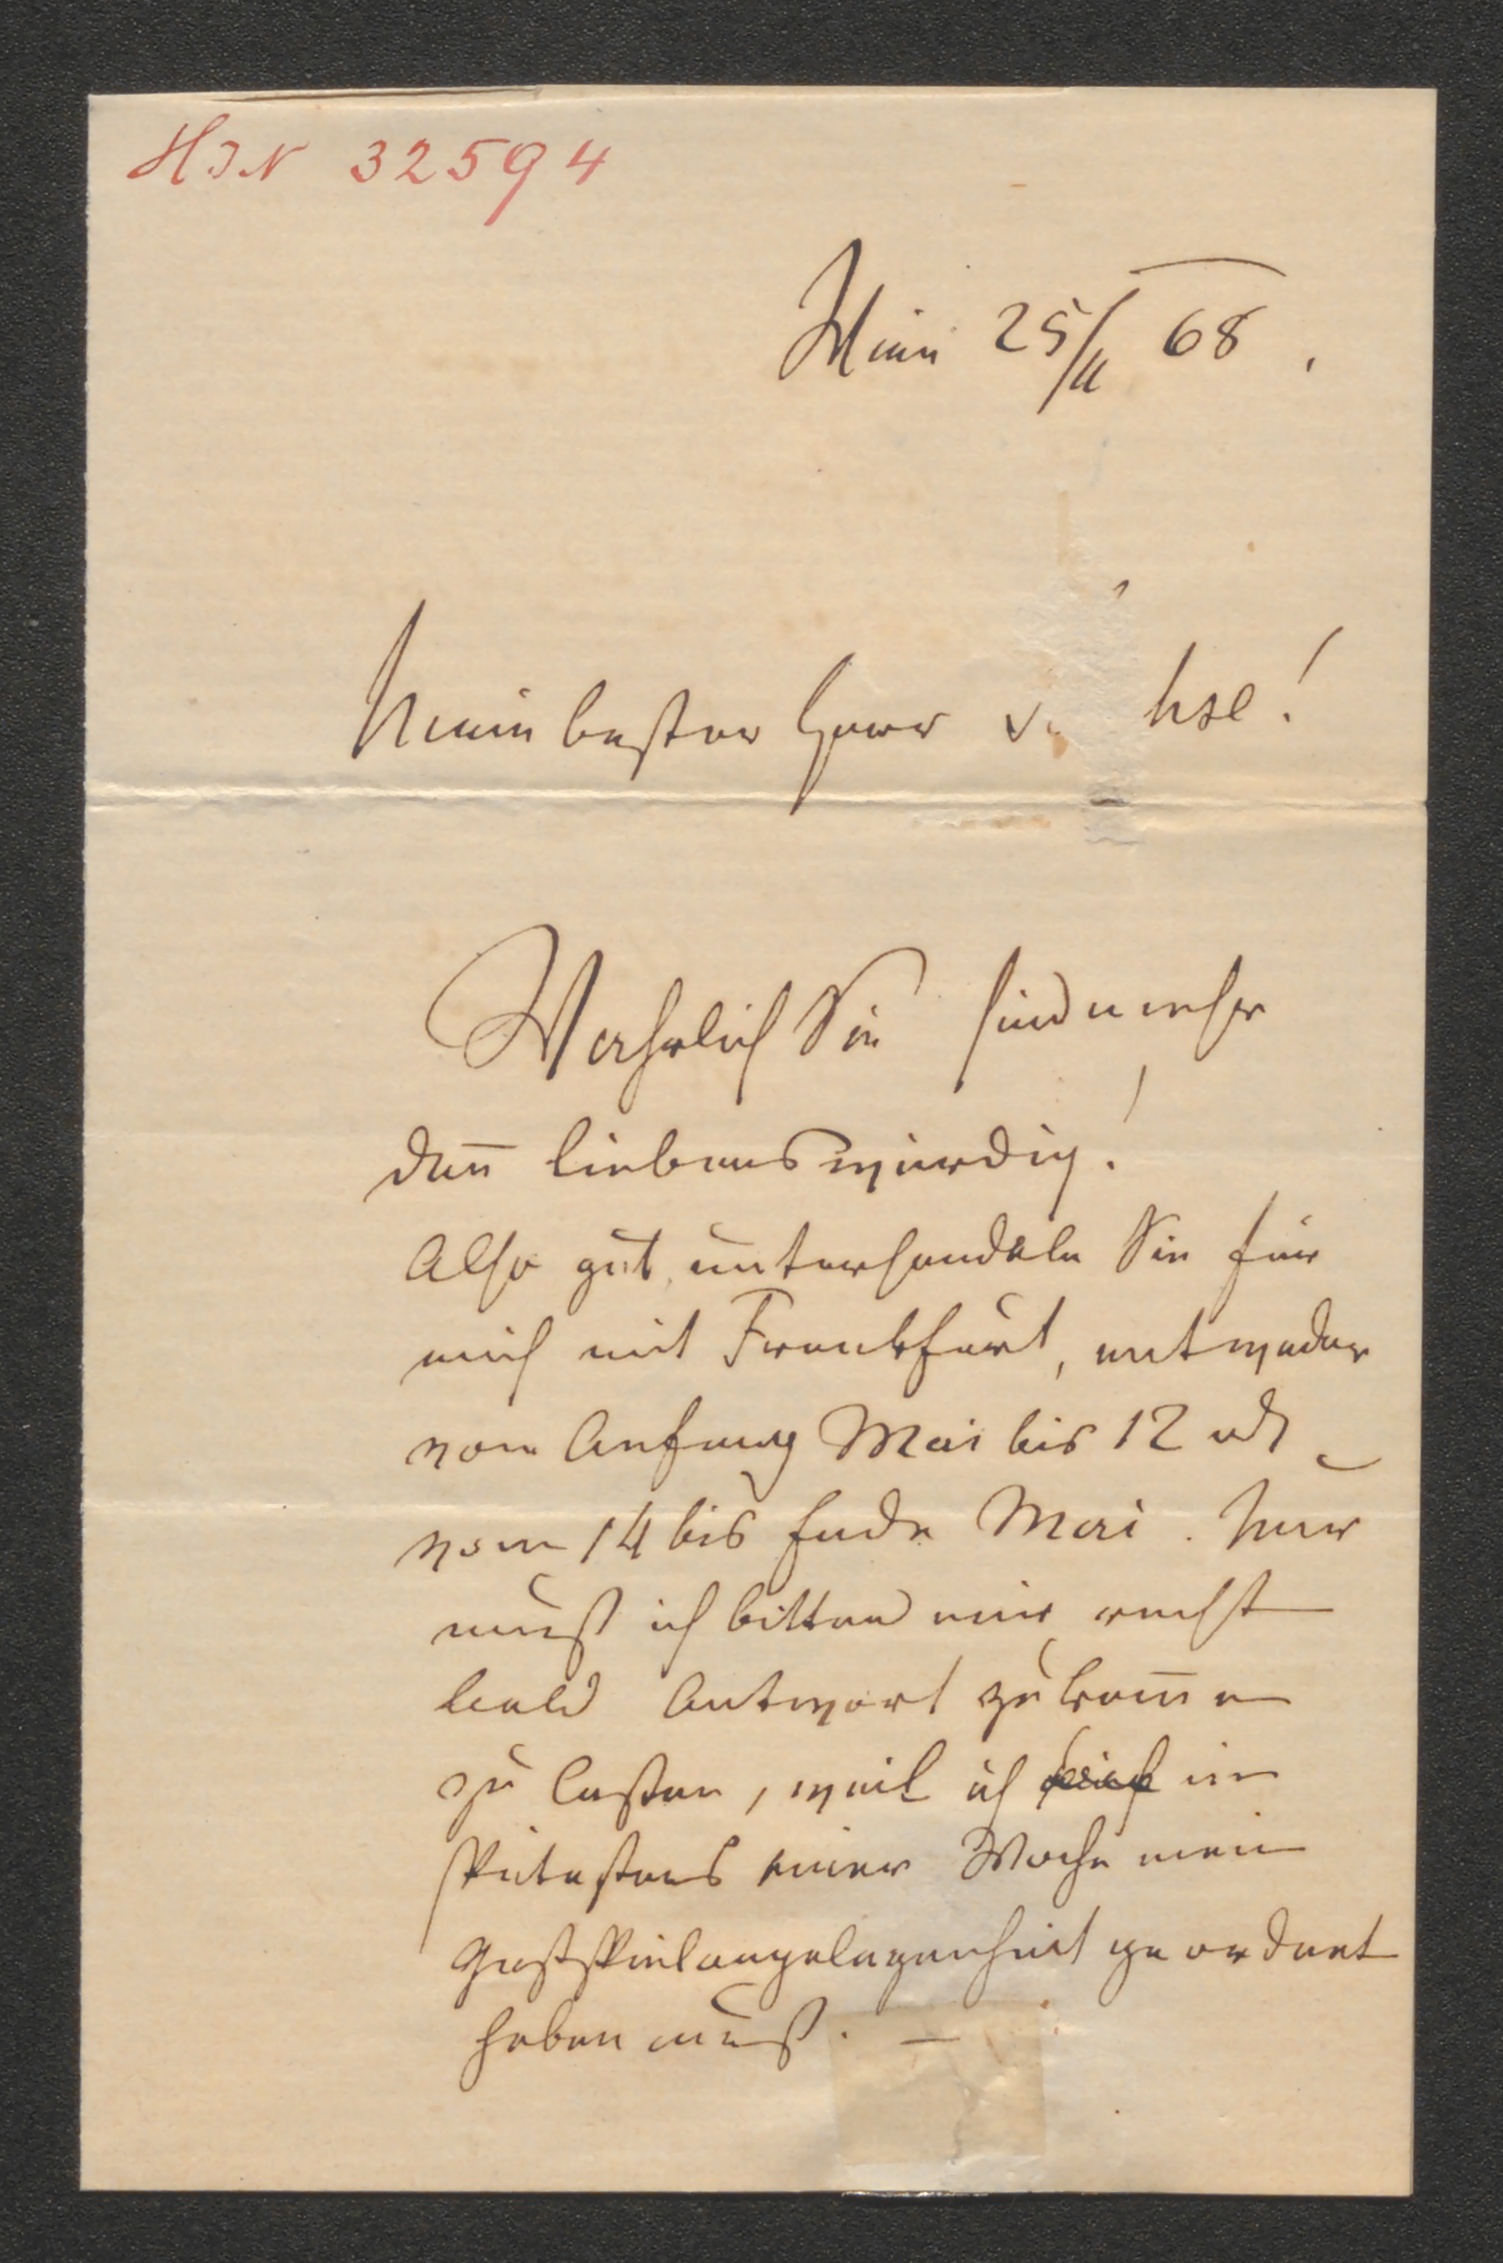 HIN 32594
Wien 25/II 68.
Mein bester Herr hse!
Wahrlich Sie sind mehr
den̄ liebenswürdig!
Also gut, unterhandeln Sie für
mich mit Frankfurt, entweder
vom Anfang Mai bis 12 od
vom 14 bis Ende Mai. Nur
muß ich bitten mir recht
bald Antwort zukom̄en
zu lassen, weil ich in
spätestens einer Woche mein
Gastspielangelegenheit geordnet
haben muß. —